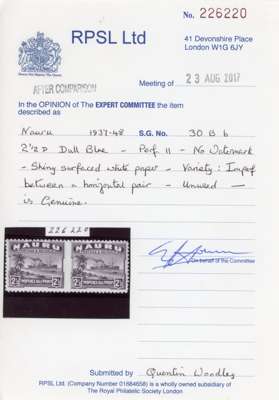 No. 226220
RPSL Ltd
41 Devonshire Place
London W1G 6JY
AFTER COMPARISON
Meeting of 23 AUG 2017
In the OPINION of The EXPERT COMMITTEE the item
described as
Nauru 1937-48 S.G. No. 30 B b
2½ D Dull Blue - Perf. 11 - No Watermark
- Shiny surfaced white paper - Variety: Imperf
between a horizontal pair - Unused —
is Genuine.
226220
NAURU NAURU
2½ TWOPENCE HALFPENNY 2½ TWOPENCE HALFPENNY 2½
On behalf of the Committee
Submitted by Quentin Woodley
RPSL Ltd. (Company Number 01684658) is a wholly owned subsidiary of
The Royal Philatelic Society London